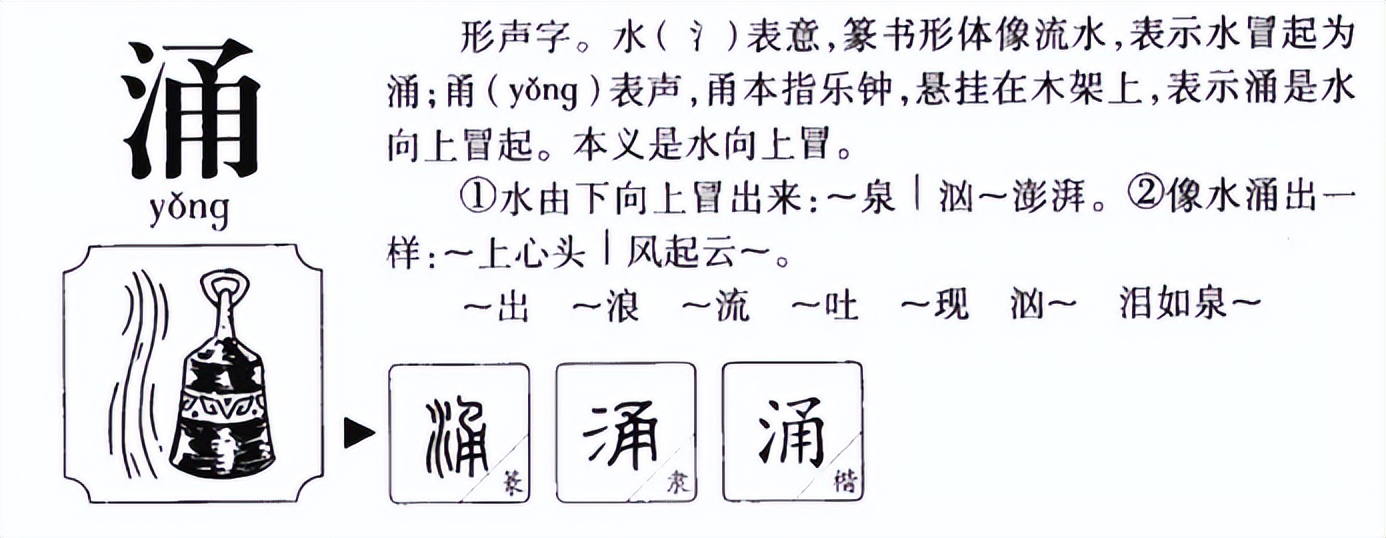 涌
yǒng
形声字。水(氵)表意,篆书形体像流水,表示水冒起为
涌;甬(yǒng)表声,甬本指乐钟,悬挂在木架上,表示涌是水
向上冒起。本义是水向上冒。
①水由下向上冒出来:～泉｜汹～澎湃。②像水涌出一
样:～上心头｜风起云～。
～出 ～浪 ～流 ～吐 ～现 汹～ 泪如泉～
涌 篆 涌 隶 涌 楷